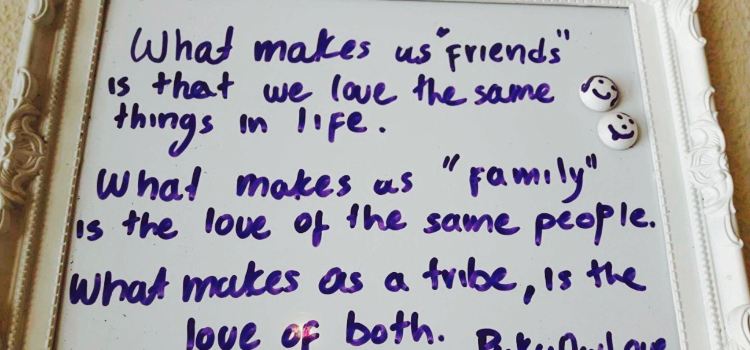 What makes us "friends"
is that we love the same
things in life.
What makes us "family"
is the love of the same people.
What makes as a tribe, is the
love of both.